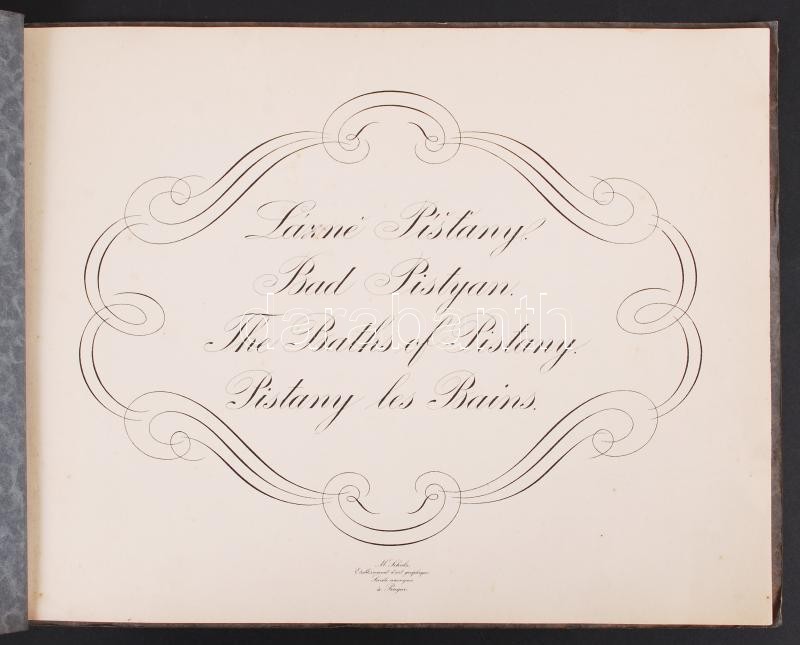 Lázně Píšťany.
Bad Pistyan.
The Baths of Pistany.
Pistany les Bains.
darabanth
M. Schulz,
Etablissement d'art graphique
Société anonyme
à Prague.